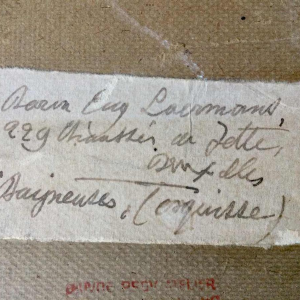 Baron Eug Laermans,
229 Chaussée de Jette,
Bruxelles
Baigneuses, (esquisse)